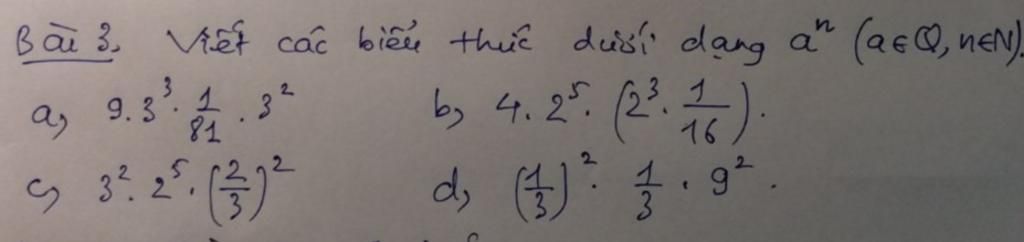 Bài 3. Viết các biểu thức dưới dạng aⁿ (a∈Q, n∈N).
a, 9.3³. 1/81 . 3² b, 4. 2⁵. (2³. 1/16).
c, 3². 2⁵. (2/3)² d, (1/3)². 1/3 . 9².